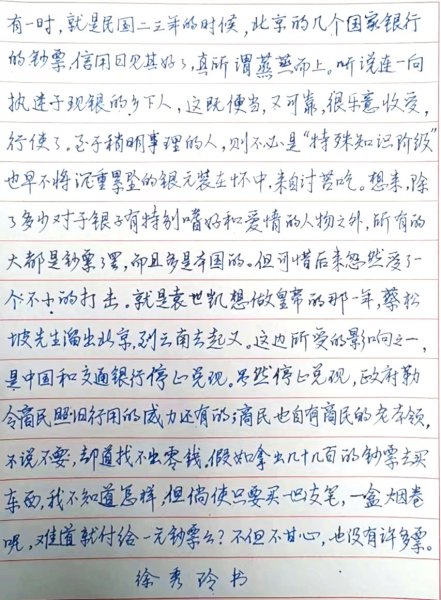 有一时，就是民国二三年的时候，北京的几个国家银行
的钞票，信用日见其好了，真所谓蒸蒸而上。听说连一向
执迷于现银的乡下人，这既便当，又可靠，很乐意收受，
行使了。至于稍明事理的人，则不必是“特殊知识阶级”
也早不将沉重累坠的银元装在怀中，来自讨苦吃。想来，除
了多少对于银子有特别嗜好和爱情的人物之外，所有的
大都是钞票了罢，而且多是本国的。但可惜后来忽然受了一
个不小的打击。就是袁世凯想做皇帝的那一年，蔡松
坡先生溜出北京，到云南去起义。这边所受的影响之一，
是中国和交通银行停止兑现。虽然停止兑现，政府勒
令商民照旧行用的威力还有的；商民也自有商民的老本领，
不说不要，却道找不出零钱。假如拿出几十几百的钞票去买
东西，我不知道怎样，但倘使只要买一枝笔，一盒烟卷
呢，难道就付给一元钞票么？不但不甘心，也没有许多票。
徐秀玲书